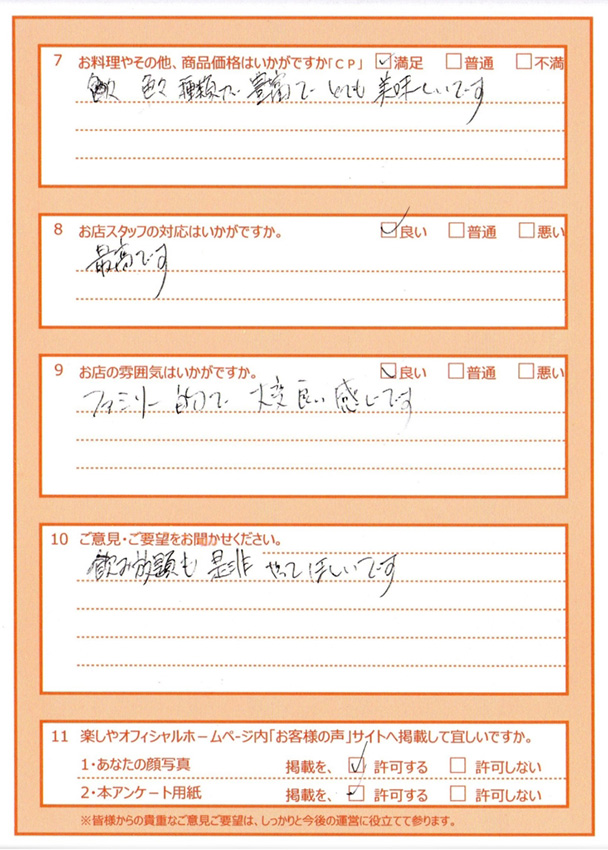 7 お料理やその他、商品価格はいかがですか「CP」 ☑満足 □普通 □不満
色々 種類が 豊富で とても 美味しいです
8 お店スタッフの対応はいかがですか。 ☑良い □普通 □悪い
最高です
9 お店の雰囲気はいかがですか。 ☑良い □普通 □悪い
ファミリー的で 大変良い感じです
10 ご意見・ご要望をお聞かせください。
飲み放題も 是非 やってほしいです
11 楽しやオフィシャルホームページ内「お客様の声」サイトへ掲載して宜しいですか。
1・あなたの顔写真 掲載を、 ☑ 許可する □ 許可しない
2・本アンケート用紙 掲載を、 ☑ 許可する □ 許可しない
※皆様からの貴重なご意見ご要望は、しっかりと今後の運営に役立てて参ります。